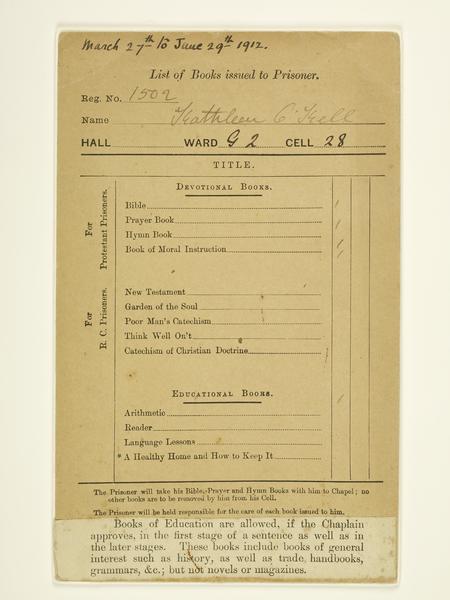 March 27th to June 29th 1912.
List of Books issued to Prisoner.
Reg. No. 1502
Name Kathleen O'Kell
HALL WARD G 2 CELL 28
TITLE.
For Protestant Prisoners.
DEVOTIONAL BOOKS.
Bible
Prayer Book
Hymn Book
Book of Moral Instruction
For R. C. Prisoners.
New Testament
Garden of the Soul
Poor Man's Catechism
Think Well On't
Catechism of Christian Doctrine
EDUCATIONAL BOOKS.
Arithmetic
Reader
Language Lessons
* A Healthy Home and How to Keep It
The Prisoner will take his Bible, Prayer and Hymn Books with him to Chapel; no
other books are to be removed by him from his Cell.
The Prisoner will be held responsible for the care of each book issued to him.
Books of Education are allowed, if the Chaplain
approves, in the first stage of a sentence as well as in
the later stages. These books include books of general
interest such as history, as well as trade handbooks,
grammars, &c.; but not novels or magazines.